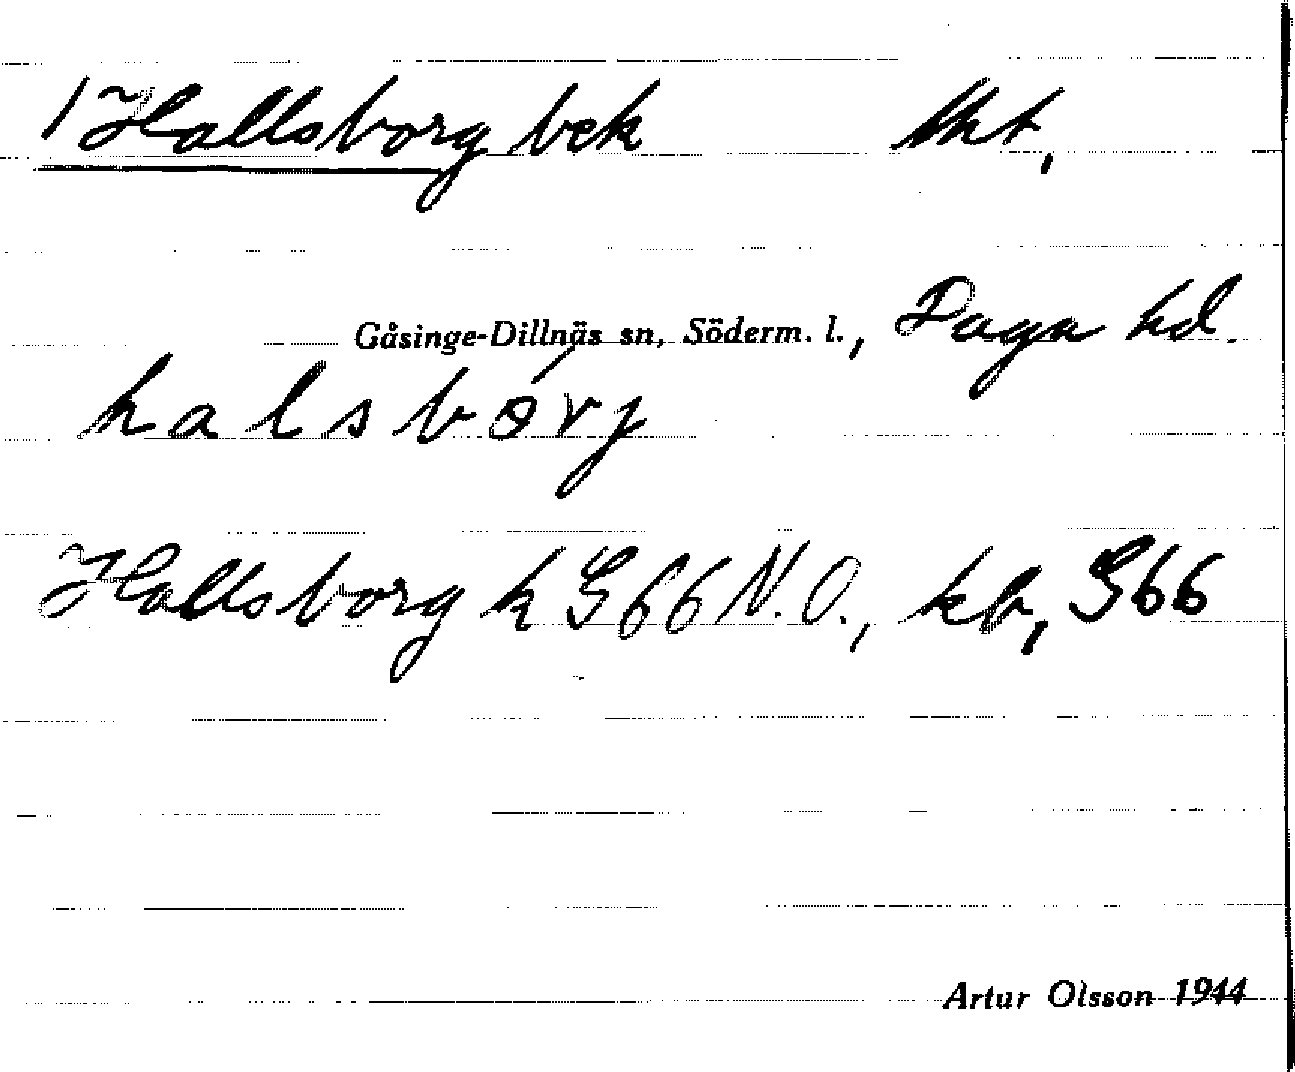 /Hallsborg bek lht,
Gåsinge-Dillnäs sn, Söderm. l., Daga hd.
halsborj
Hallsborg h G66 N.O., kb, G66
Artur Olsson 1944